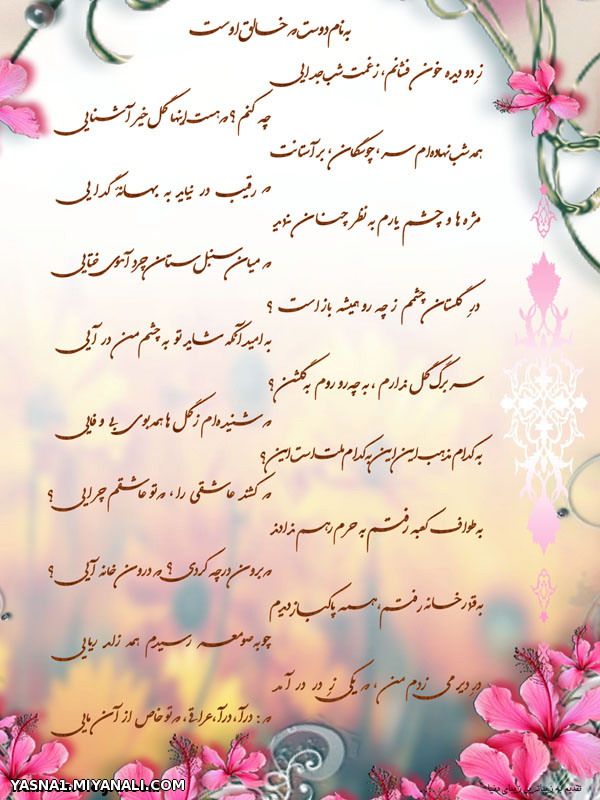 به نام دوست که خالق اوست
ز دو دیده خون فشانم، ز غمت شب جدایی
چه کنم؟ که هست اینها گل خیر آشنایی
همه شب نهاده‌ام سر، چو سگان، بر آستانت
که رقیب در نیاید به بهانهٔ گدایی
مژه ها و چشم یارم به نظر چنان نماید
که میان سنبلستان چرد آهوی ختایی
درِ گلستان چشمم ز چه رو همیشه باز است ؟
به امید آنکه شاید تو به چشم من در آیی
سر برگ گل ندارم ، به چه رو روم به گلشن ؟
که شنیده‌ام ز گل ها همه بوی بی وفایی
به کدام مذهب است این به کدام ملت است این؟
که کشند عاشقی را ، که تو عاشقم چرایی ؟
به طواف کعبه رفتم به حرم رهم ندادند
که برون در چه کردی ؟ که درون خانه آیی ؟
به قمار خانه رفتم، همه پاکباز دیدم
چو به صومعه رسیدم همه زاهد ریایی
در دیر می زدم من ، که یکی ز در در آمد
که : درآ، درآ، عراقی، که تو خاص از آن مایی
تقدیم به زیباترین زیبای دنیا
YASNA1.MIYANALI.COM